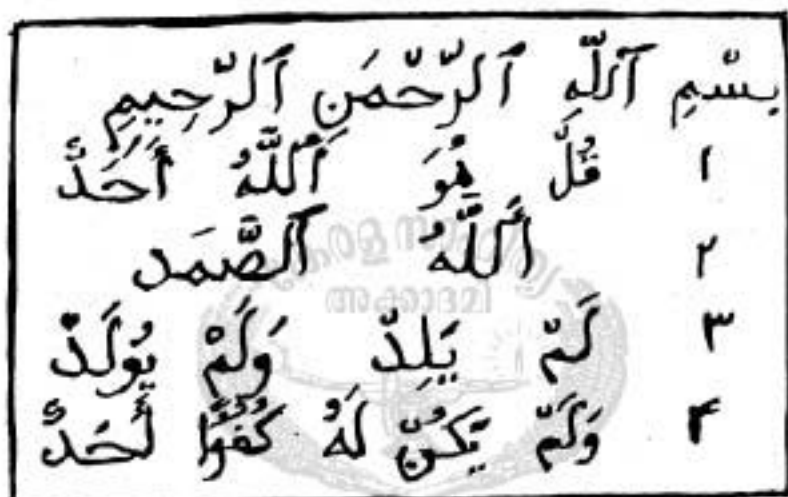 بِسْمِ ٱللَّهِ ٱلرَّحْمَنِ ٱلرَّحِيمِ
١ قُلْ هُوَ ٱللَّهُ أَحَدٌ
٢ ٱللَّهُ ٱلصَّمَد
٣ لَمْ يَلِدْ وَلَمْ يُولَدْ
۴ وَلَمْ يَكُنْ لَهُ كُفُوًا أَحَدٌ
കേരള സാഹിത്യ
അക്കാദമി